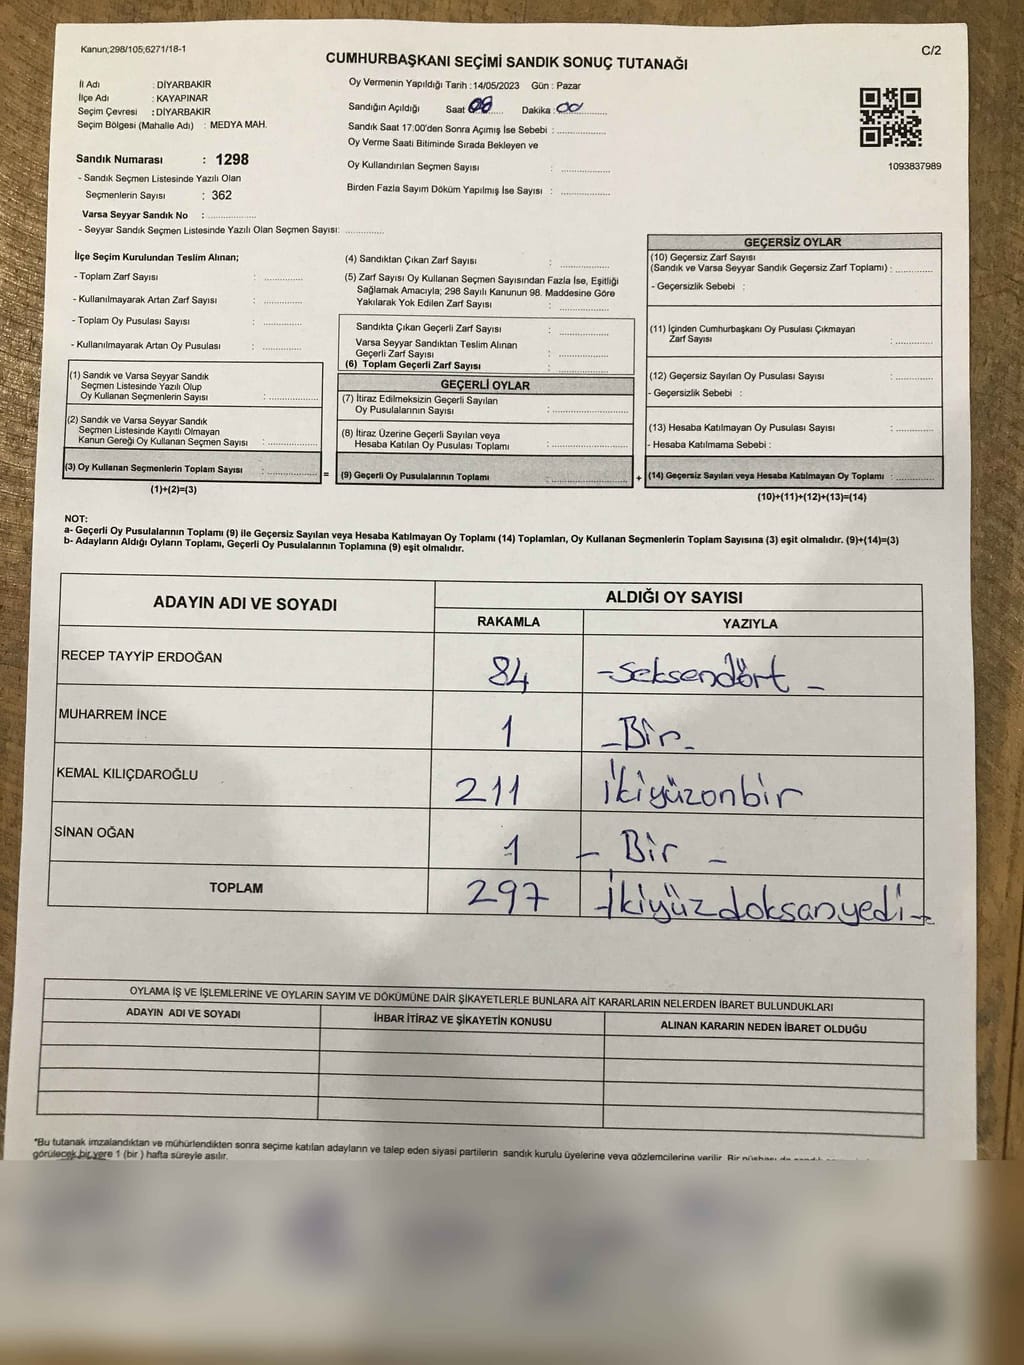 Kanun;298/105;6271/18-1
C/2
CUMHURBAŞKANI SEÇİMİ SANDIK SONUÇ TUTANAĞI
İl Adı : DİYARBAKIR
İlçe Adı : KAYAPINAR
Seçim Çevresi : DİYARBAKIR
Seçim Bölgesi (Mahalle Adı) : MEDYA MAH.
Oy Vermenin Yapıldığı Tarih : 14/05/2023 Gün : Pazar
Sandığın Açıldığı Saat 08 Dakika : 00
Sandık Saat 17:00'den Sonra Açımış İse Sebebi :
Oy Verme Saati Bitiminde Sırada Bekleyen ve
Oy Kullandırılan Seçmen Sayısı :
Birden Fazla Sayım Döküm Yapılmış İse Sayısı :
1093837989
Sandık Numarası : 1298
- Sandık Seçmen Listesinde Yazılı Olan
Seçmenlerin Sayısı : 362
Varsa Seyyar Sandık No :
- Seyyar Sandık Seçmen Listesinde Yazılı Olan Seçmen Sayısı:
İlçe Seçim Kurulundan Teslim Alınan;
- Toplam Zarf Sayısı :
- Kullanılmayarak Artan Zarf Sayısı :
- Toplam Oy Pusulası Sayısı :
- Kullanılmayarak Artan Oy Pusulası :
(1) Sandık ve Varsa Seyyar Sandık
Seçmen Listesinde Yazılı Olup
Oy Kullanan Seçmenlerin Sayısı :
(2) Sandık ve Varsa Seyyar Sandık
Seçmen Listesinde Kayıtlı Olmayan
Kanun Gereği Oy Kullanan Seçmen Sayısı :
(3) Oy Kullanan Seçmenlerin Toplam Sayısı :
(1)+(2)=(3)
(4) Sandıktan Çıkan Zarf Sayısı :
(5) Zarf Sayısı Oy Kullanan Seçmen Sayısından Fazla İse, Eşitliği
Sağlamak Amacıyla; 298 Sayılı Kanunun 98. Maddesine Göre
Yakılarak Yok Edilen Zarf Sayısı :
Sandıkta Çıkan Geçerli Zarf Sayısı :
Varsa Seyyar Sandıktan Teslim Alınan
Geçerli Zarf Sayısı :
(6) Toplam Geçerli Zarf Sayısı :
GEÇERLİ OYLAR
(7) İtiraz Edilmeksizin Geçerli Sayılan
Oy Pusulalarının Sayısı :
(8) İtiraz Üzerine Geçerli Sayılan veya
Hesaba Katılan Oy Pusulası Toplamı :
= (9) Geçerli Oy Pusulalarının Toplamı :
GEÇERSİZ OYLAR
(10) Geçersiz Zarf Sayısı
(Sandık ve Varsa Seyyar Sandık Geçersiz Zarf Toplamı) :
- Geçersizlik Sebebi :
(11) İçinden Cumhurbaşkanı Oy Pusulası Çıkmayan
Zarf Sayısı :
(12) Geçersiz Sayılan Oy Pusulası Sayısı :
- Geçersizlik Sebebi :
(13) Hesaba Katılmayan Oy Pusulası Sayısı :
- Hesaba Katılmama Sebebi :
+ (14) Geçersiz Sayılan veya Hesaba Katılmayan Oy Toplamı :
(10)+(11)+(12)+(13)=(14)
NOT:
a- Geçerli Oy Pusulalarının Toplamı (9) ile Geçersiz Sayılan veya Hesaba Katılmayan Oy Toplamı (14) Toplamları, Oy Kullanan Seçmenlerin Toplam Sayısına (3) eşit olmalıdır. (9)+(14)=(3)
b- Adayların Aldığı Oyların Toplamı, Geçerli Oy Pusulalarının Toplamına (9) eşit olmalıdır.
ADAYIN ADI VE SOYADI ALDIĞI OY SAYISI
RAKAMLA YAZIYLA
RECEP TAYYİP ERDOĞAN 84 -seksendört-
MUHARREM İNCE 1 -Bir-
KEMAL KILIÇDAROĞLU 211 İkiyüzonbir
SİNAN OĞAN 1 - Bir -
TOPLAM 297 -İkiyüzdoksanyedi-
OYLAMA İŞ VE İŞLEMLERİNE VE OYLARIN SAYIM VE DÖKÜMÜNE DAİR ŞİKAYETLERLE BUNLARA AİT KARARLARIN NELERDEN İBARET BULUNDUKLARI
ADAYIN ADI VE SOYADI İHBAR İTİRAZ VE ŞİKAYETİN KONUSU ALINAN KARARIN NEDEN İBARET OLDUĞU
*Bu tutanak imzalandıktan ve mühürlendikten sonra seçime katılan adayların ve talep eden siyasi partilerin sandık kurulu üyelerine veya gözlemcilerine verilir. Bir nüshası da
görülecek bir yere 1 (bir ) hafta süreyle asılır.